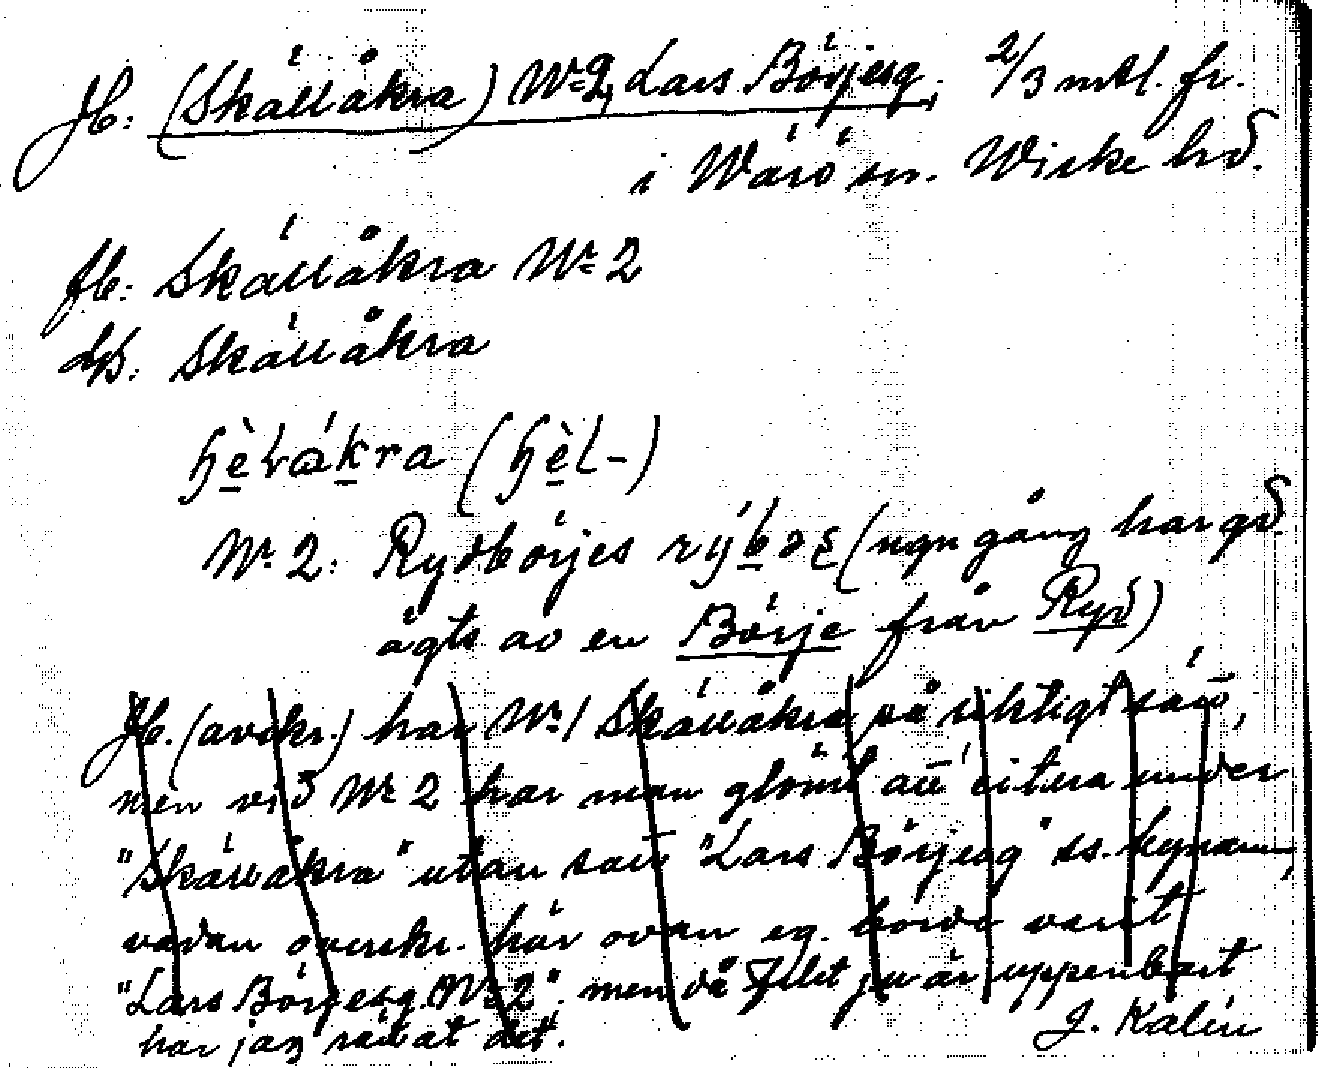 Jb: (Skällåkra) Nr 2, Lars Börjesg, 2/3 mtl. fr.
i Wärö sn. Wiske hd.
fb: Skällåkra Nr 2
Skällåkra
Nr 2: Rydbörjes (ngn gång har gd
ägts av en Börje från Ryd)
Jb. (avskr.) har Nr 1 Skällåkra så riktigt satt,
men vid Nr 2 har man glömt att citera under
"Skällåkra" utan satt "Lars Börjesg" ss. bynamn,
vadan överskr. här ovan eg. borde varit
"Lars Börjesg. Nr 2", men då felet ju är uppenbart
har jag rättat det. J. Kalén